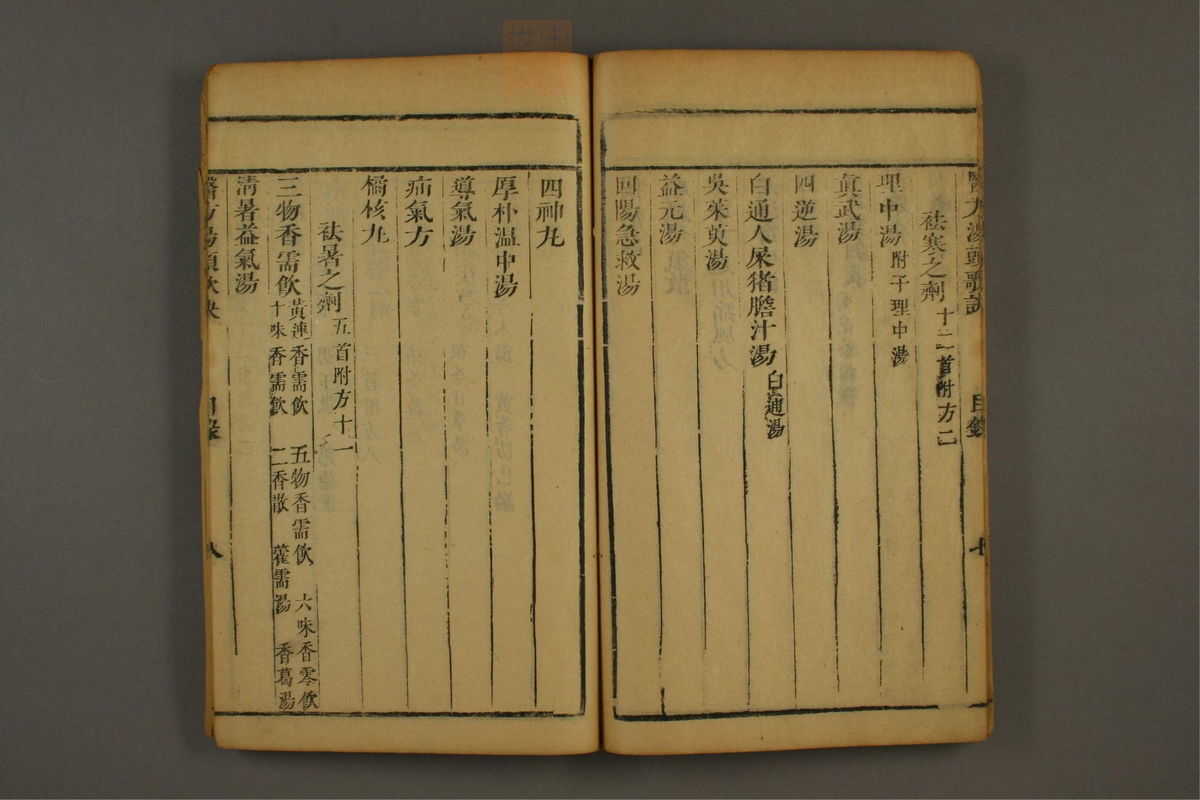 醫方湯頭歌訣 目錄 七
祛寒之劑 十二首附方二
理中湯 附子理中湯
眞武湯
四逆湯
白通人尿猪膽汁湯 白通湯
吳茱萸湯
益元湯
回陽急救湯
四神丸
厚朴温中湯
導氣湯
疝氣方
橘核丸
祛暑之劑 五首附方十一
三物香需飲 黃連香需飲 五物香需飲 六味香零飲
十味香需飲 二香散 藿需湯 香葛湯
清暑益氣湯
醫方湯頭歌訣 目錄 八